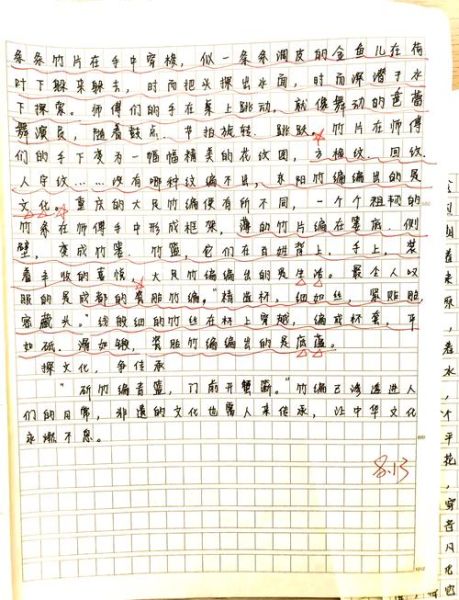 条条竹片在手中穿梭，似一条条调皮的金鱼儿在荷
叶下躲来躲去，时而把头探出水面，时而深潜于水
下探索。师傅们的手在桌上跳动，就像舞动的芭蕾
舞演员，随着鼓点、节拍旋转、跳跃。竹片在师傅
们的手下变为一幅幅精美的花纹图，方格纹、回纹、
人字纹……没有哪种纹编不出，东阳竹编编出的是
文化。重庆的大足竹编便有所不同，一个个粗制的
竹条在师傅手中形成框架，薄的竹片编在篓底、侧
壁，变成竹篓、竹篮，它们在百姓背上，手上，装
着丰收的喜悦，大足竹编编出的是生活。最令人叹
服的是成都的瓷胎竹编，“精选料，细如丝，紧贴胎
密藏头。”线般细的竹丝在杯上穿越，编成杯套，平
如砥、滑如缎，瓷胎竹编编出的是底蕴。
探文化，争传承
“斫竹编青篮，门前开蟹断。”竹编已渗透进人
们的日常，非遗的文化也需人来传承，让中华文化
永燃不息。
8.13